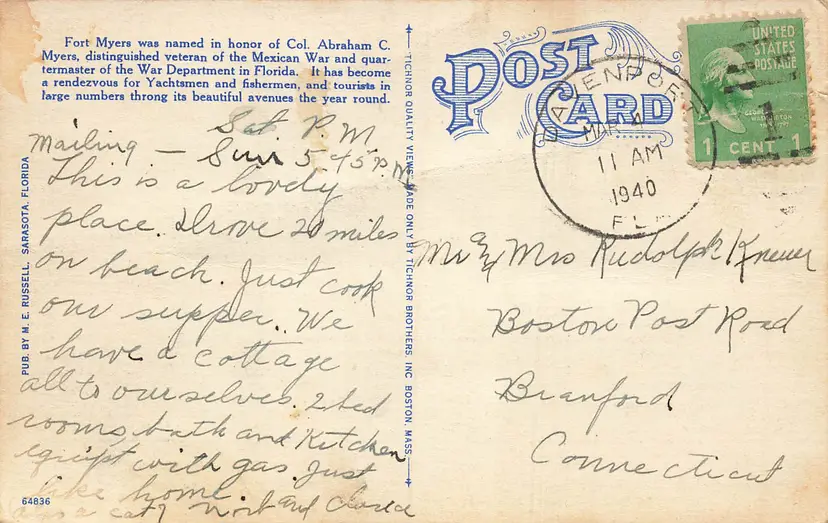 Fort Myers was named in honor of Col. Abraham C.
Myers, distinguished veteran of the Mexican War and quar-
termaster of the War Department in Florida. It has become
a rendezvous for Yachtsmen and fishermen, and tourists in
large numbers throng its beautiful avenues the year round.
Sat P.M
Mailing — Sun 5 45 P.M
This is a lovely
place. Drove 20 miles
on beach. Just cook
our supper. We
have a cottage
all to ourselves. 2 bed
rooms, bath and Kitchen
equipt with gas. Just
like home
a cat? and
PUB. BY M. E. RUSSELL, SARASOTA, FLORIDA
64836
TICHNOR QUALITY VIEWS MADE ONLY BY TICHNOR BROTHERS, INC. BOSTON, MASS.
POST
CARD
DAVENPORT
MAR 4
11 AM
1940
FLA
UNITED
STATES
POSTAGE
WASHINGTON
1 CENT 1
Mr & Mrs Rudolph Kneuer
Boston Post Road
Branford
Connecticut